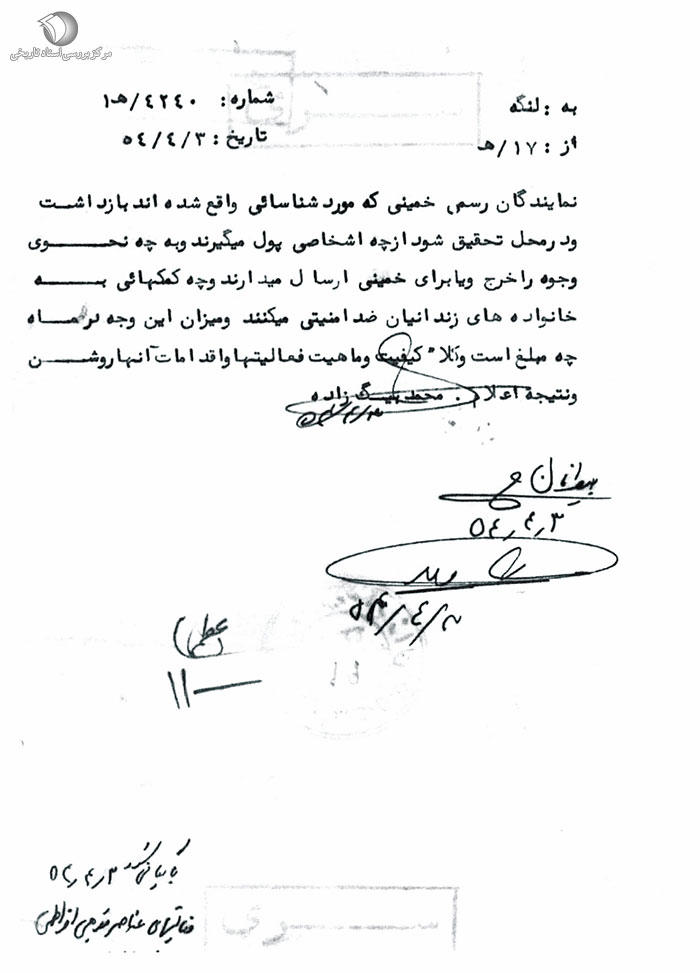 مرکز بررسی اسناد تاریخی
به : لنگه
شماره : ۴۲۴۰/هـ۱
از : ۱۷/هـ
تاریخ : ۵۴/۴/۳
نمایندگان رسمی خمینی که مورد شناسائی واقع شده اند بازداشت
و در محل تحقیق شود از چه اشخاصی پول میگیرند و به چه نحوی
وجوه را خرج و یا برای خمینی ارسال میدارند و چه کمکهائی به
خانواده های زندانیان ضد امنیتی میکنند و میزان این وجه در ماه
چه مبلغ است و کلا" کیفیت و ماهیت فعالیتها و اقدامات آنها روشن
و نتیجه اعلام .
بیگ زاده
۵۴٫۴٫۳
۱۱
بایگانی شود ۵۴٫۴٫۳
فعالیتهای عناصر مذهبی افراطی
ســری